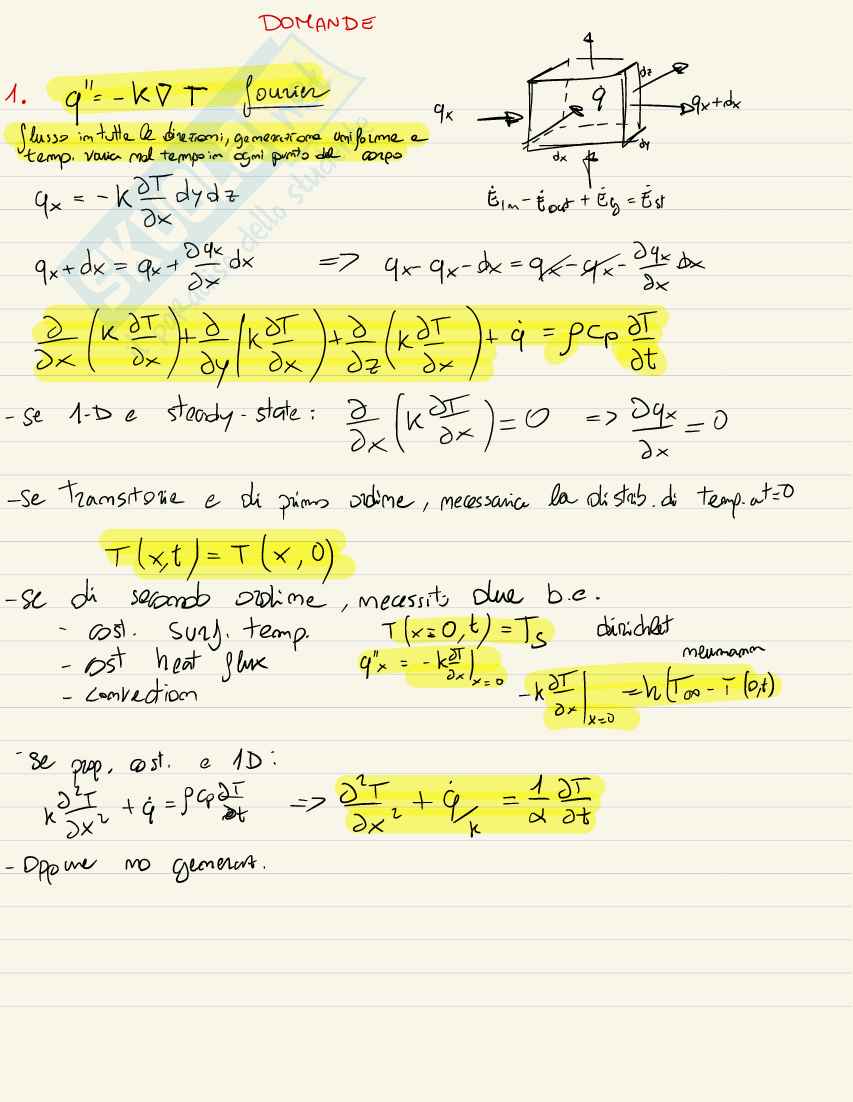 DOMANDE
1. q" = -k∇T fourier
flusso in tutte le direzioni, generazione uniforme e
temp. varia nel tempo in ogni punto del corpo
qx
q̇
dz
qx+dx
dx
dy
Ėin - Ėout + Ėg = Ėst
qx = -k ∂T/∂x dydz
qx+dx = qx + ∂qx/∂x dx => qx - qx-dx = qx - qx - ∂qx/∂x dx
∂/∂x (k ∂T/∂x) + ∂/∂y (k ∂T/∂x) + ∂/∂z (k ∂T/∂x) + q̇ = ρcp ∂T/∂t
- se 1-D e steady-state: ∂/∂x (k ∂T/∂x) = 0 => ∂qx/∂x = 0
- se transitorie e di primo ordine, necessaria la distrib. di temp. at=0
T(x,t) = T(x,0)
- se di secondo ordine, necessit. due b.c.
- cost. surf. temp. T(x=0,t) = Ts dirichlet
- cost heat flux q"x = -k ∂T/∂x |x=0 neumann
- convection -k ∂T/∂x |x=0 = h(T∞ - T(0,t)
- se prop. cost. e 1D:
k ∂²T/∂x² + q̇ = ρcp ∂T/∂t => ∂²T/∂x² + q̇/k = 1/α ∂T/∂t
- Oppure no generat.
SKUOLA.net
il paradiso dello studente